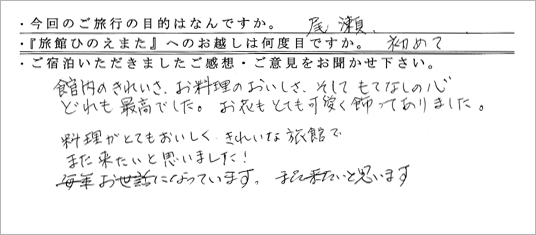 ・今回のご旅行の目的はなんですか。 尾瀬.
・『旅館ひのえまた』へのお越しは何度目ですか。 初めて
・ご宿泊いただきましたご感想・ご意見をお聞かせ下さい。
館内のきれいさ、お料理のおいしさ、そしてもてなしの心
どれも最高でした。 お花もとても可愛く飾ってありました。
料理がとてもおいしく きれいな旅館で
また来たいと思いました!
毎年お世話になっています。 また来たいと思います